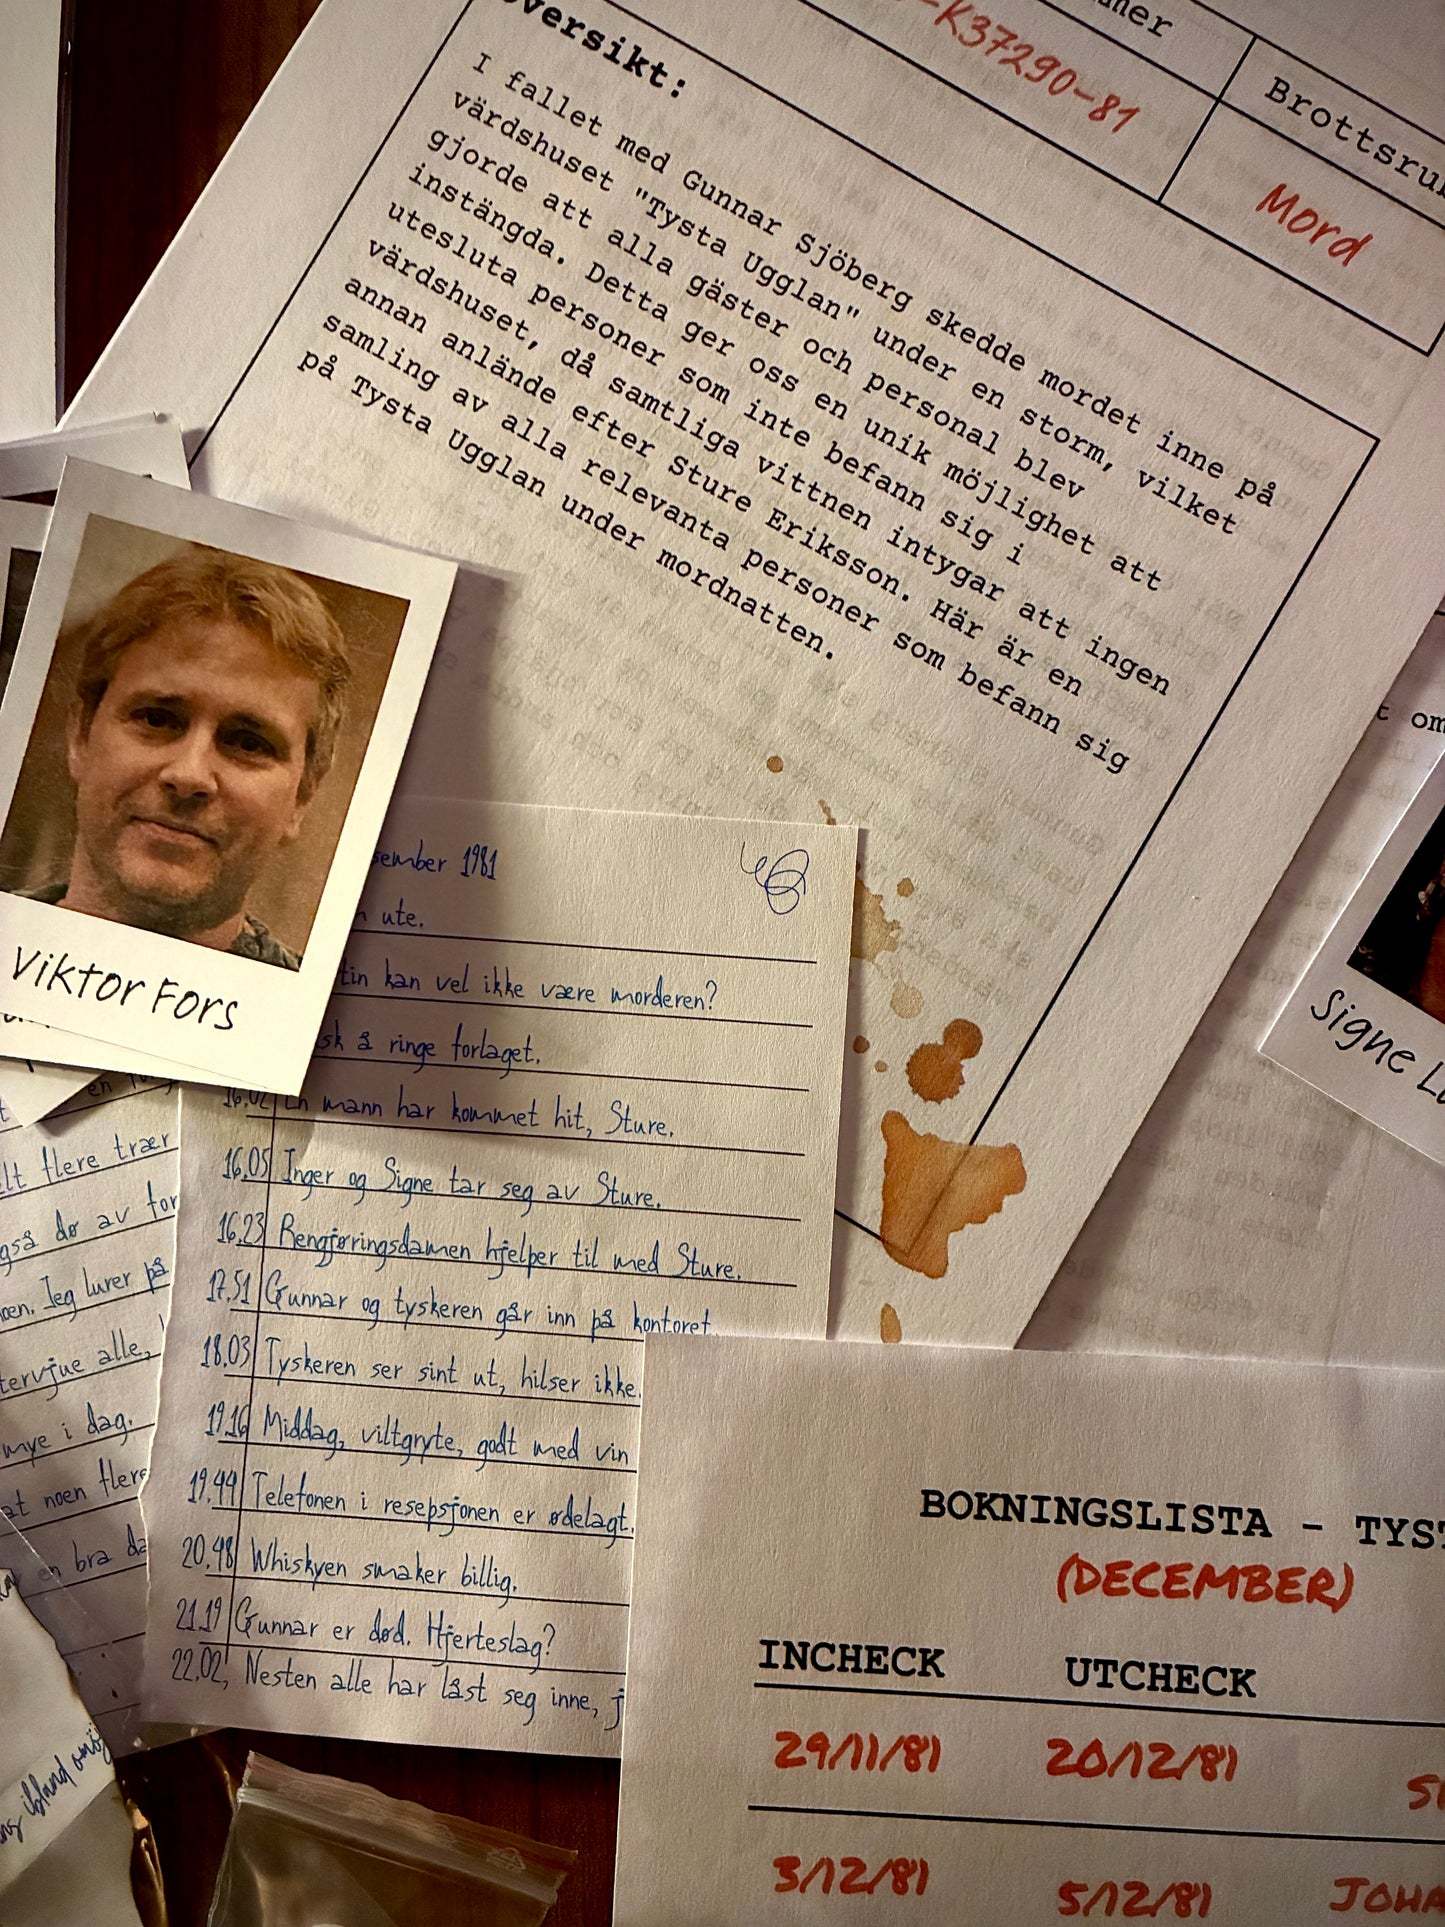 K37290-81
Mord
I fallet med Gunnar Sjöberg skedde mordet inne på
värdshuset "Tysta Ugglan" under en storm, vilket
gjorde att alla gäster och personal blev
instängda. Detta ger oss en unik möjlighet att
utesluta personer som inte befann sig i
värdshuset, då samtliga vittnen intygar att ingen
annan anlände efter Sture Eriksson. Här är en
samling av alla relevanta personer som befann sig
på Tysta Ugglan under mordnatten.
Viktor Fors
Signe
1981
ute.
kan vel ikke være morderen?
å ringe forlaget.
16.02 En mann har kommet hit, Sture.
16.05 Inger og Signe tar seg av Sture.
16.23 Rengjøringsdamen hjelper til med Sture.
17.51 Gunnar og tyskeren går inn på kontoret
18.03 Tyskeren ser sint ut, hilser ikke.
19.16 Middag, viltgryte, godt med vin
19.44 Telefonen i resepsjonen er ødelagt.
20.48 Whiskyen smaker billig.
21.19 Gunnar er død. Hjerteslag?
22.02, Nesten alle har låst seg inne,
flere trær
dø av
Jeg lurer på
alle,
mye i dag.
at noen flere
en bra
ibland
BOKNINGSLISTA -
(DECEMBER)
INCHECK UTCHECK
29/11/81 20/12/81
3/12/81 5/12/81